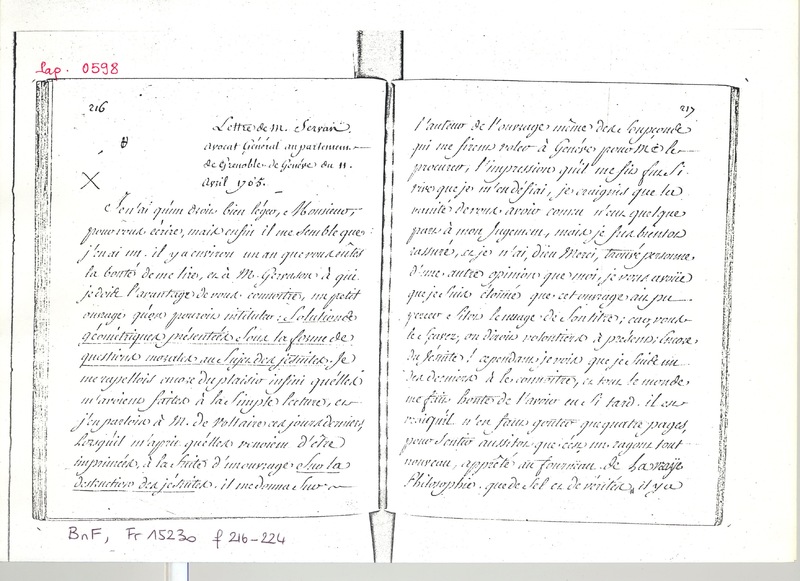 Lap. 0598
216
Lettre de M. Servan,
avocat Général au parlement
de Grenoble de Genève du 11.
avril 1765.
Je n'ai qu'un droit bien léger, Monsieur,
pour vous écrire, mais enfin il me semble que
j'en ai un. il y a environ un an que vous eûtes
la bonté de me lire, et à M. Gervason à qui
je dois l'avantage de vous connoitre, un petit
ouvrage qu'on pouvoit intituler: Solution de
géometriques présentées sous la forme de
questions morales au sujet des jesuites. Je
me rapellois encore du plaisir infini qu'elles
m'avoient faites à la simple lecture, et
j'en parlois à M. de Voltaire ces jours derniers,
lorsqu'il m'aprit qu'elles venoient d'être
imprimées, à la suite d'un ouvrage Sur la
destruction des jesuites. il me donna sur
217
l'auteur de l'ouvrage même des
qui me firent voler à Genève pour me le
procurer, l'impression qu'il me fit fut si
vive que je m'en défiai, je craignis que la
vanité de vous avoir connu n'eut quelque
part à mon Jugement, mais je fus bientot
rassuré, et je n'ai, dieu Merci, trouvé personne
d'une autre opinion que moi, je vous avoue
que je suis étonné que cet ouvrage ait pu
percer sitot le nuage de son titre; car, vous
le scavez, on diroit volontiers à présent: Encore
du Jésuite! cependant je vois que je suis un
des derniers à le connoître, et tout le monde
me fait honte de l'avoir eu si tard. il est
vrai qu'il n'en faut gouter que quatre pages,
pour sentir aussitot que c'est un ragout tout
nouveau, apprêté au fourneau de La vraye
Philosophie. que de sel et de vérités, il y a
BnF, Fr 15230 f 216-224